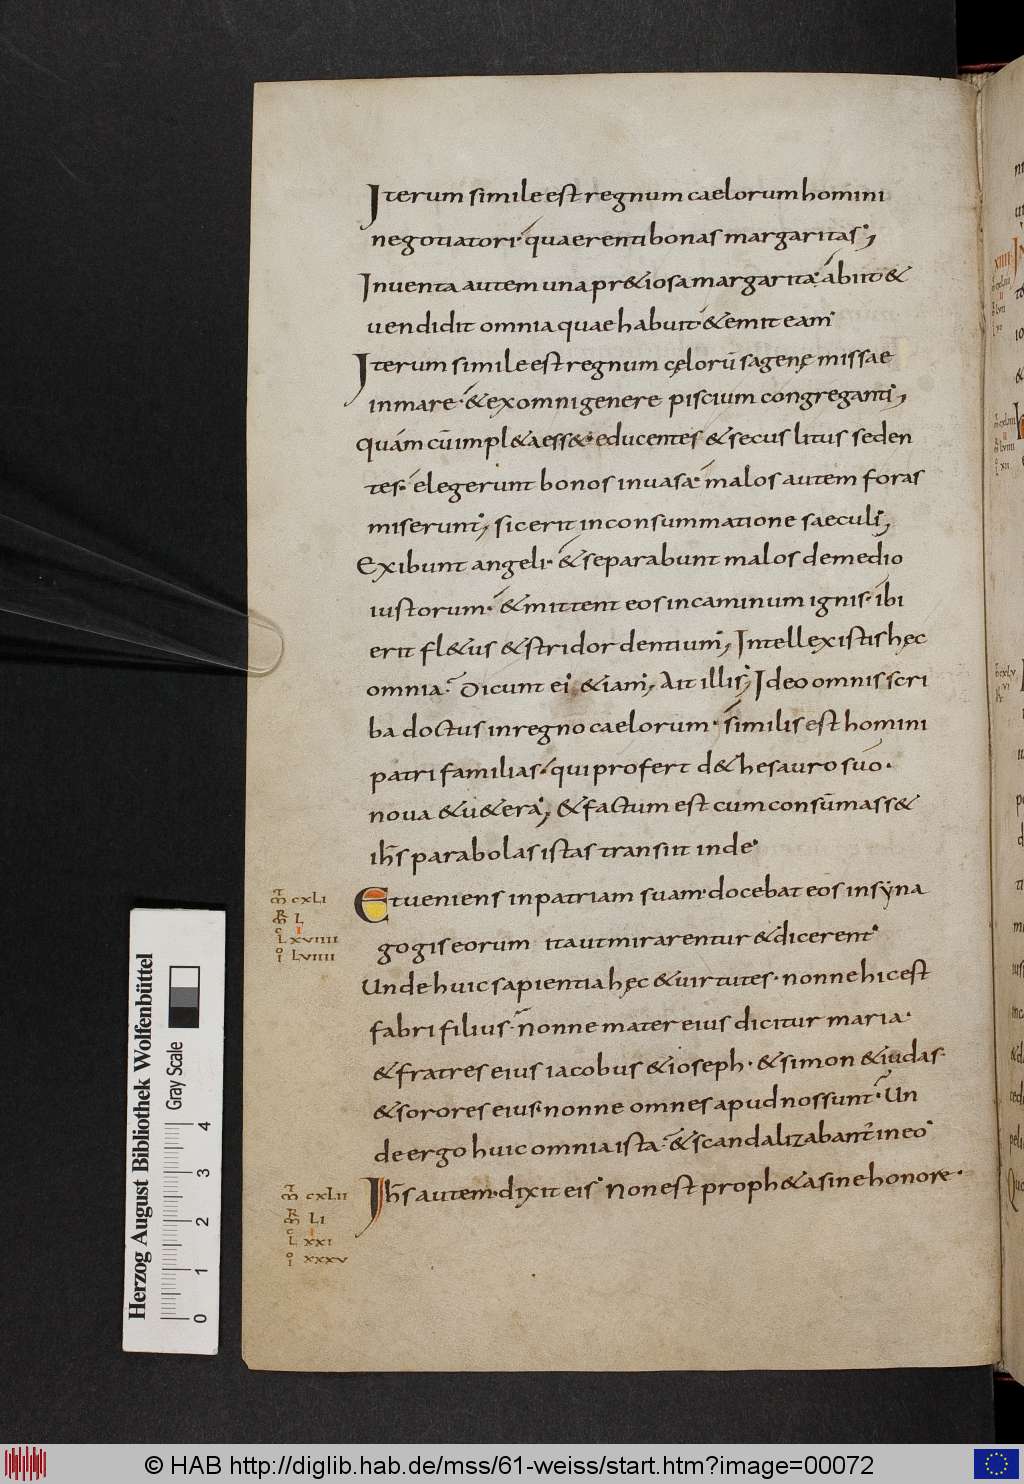 Iterum simile est regnum caelorum homini
negotiatori· quaerenti bonas margaritas;
Inventa autem una pr&iosa margarita· abiit &
uendidit omnia quae habuit· & emit eam·
Iterum simile est regnum cęlorū sagenę missae
in mare· & ex omni genere piscium congreganti;
Quám cū impl&a ess&· educentes & secus litus seden
tes· elegerunt bonos in uasa· malos autem foras
miserunt; sic erit in consummatione saeculi;
Exibunt angeli· & separabunt malos de medio
iustorum· & mittent eos in caminum ignis· ibi
erit fl&us & stridor dentium; Intellexistis hęc
omnia? Dicunt ei· &iam; Ait illis; Ideo omnis scri
ba doctus in regno caelorum· similis est homini
patri familias· qui profert de thesauro suo·
noua & u&era; & factum est cum consūmass&
ih̄s parabolas istas transiit inde·
Et ueniens in patriam suam· docebat eos in syna
gogis eorum ita ut mirarentur & dicerent·
Unde huic sapientia hęc & uirtutes· nonne hic est
fabri filius· Nonne mater eius dicitur maria·
& fratres eius iacobus & ioseph· & simon & iudas·
& sorores eius· nonne omnes apud nos sunt· Un
de ergo huic omnia ista· & scandalizabant· in eo·
Ih̄s autem· dixit eis· Non est proph&a sine honore·
CXLI
L
XVIIII
LVIIII
CXLII
LI
XXI
XXXV
Herzog August Bibliothek Wolfenbüttel
Gray Scale
0 1 2 3 4
© HAB http://diglib.hab.de/mss/61-weiss/start.htm?image=00072